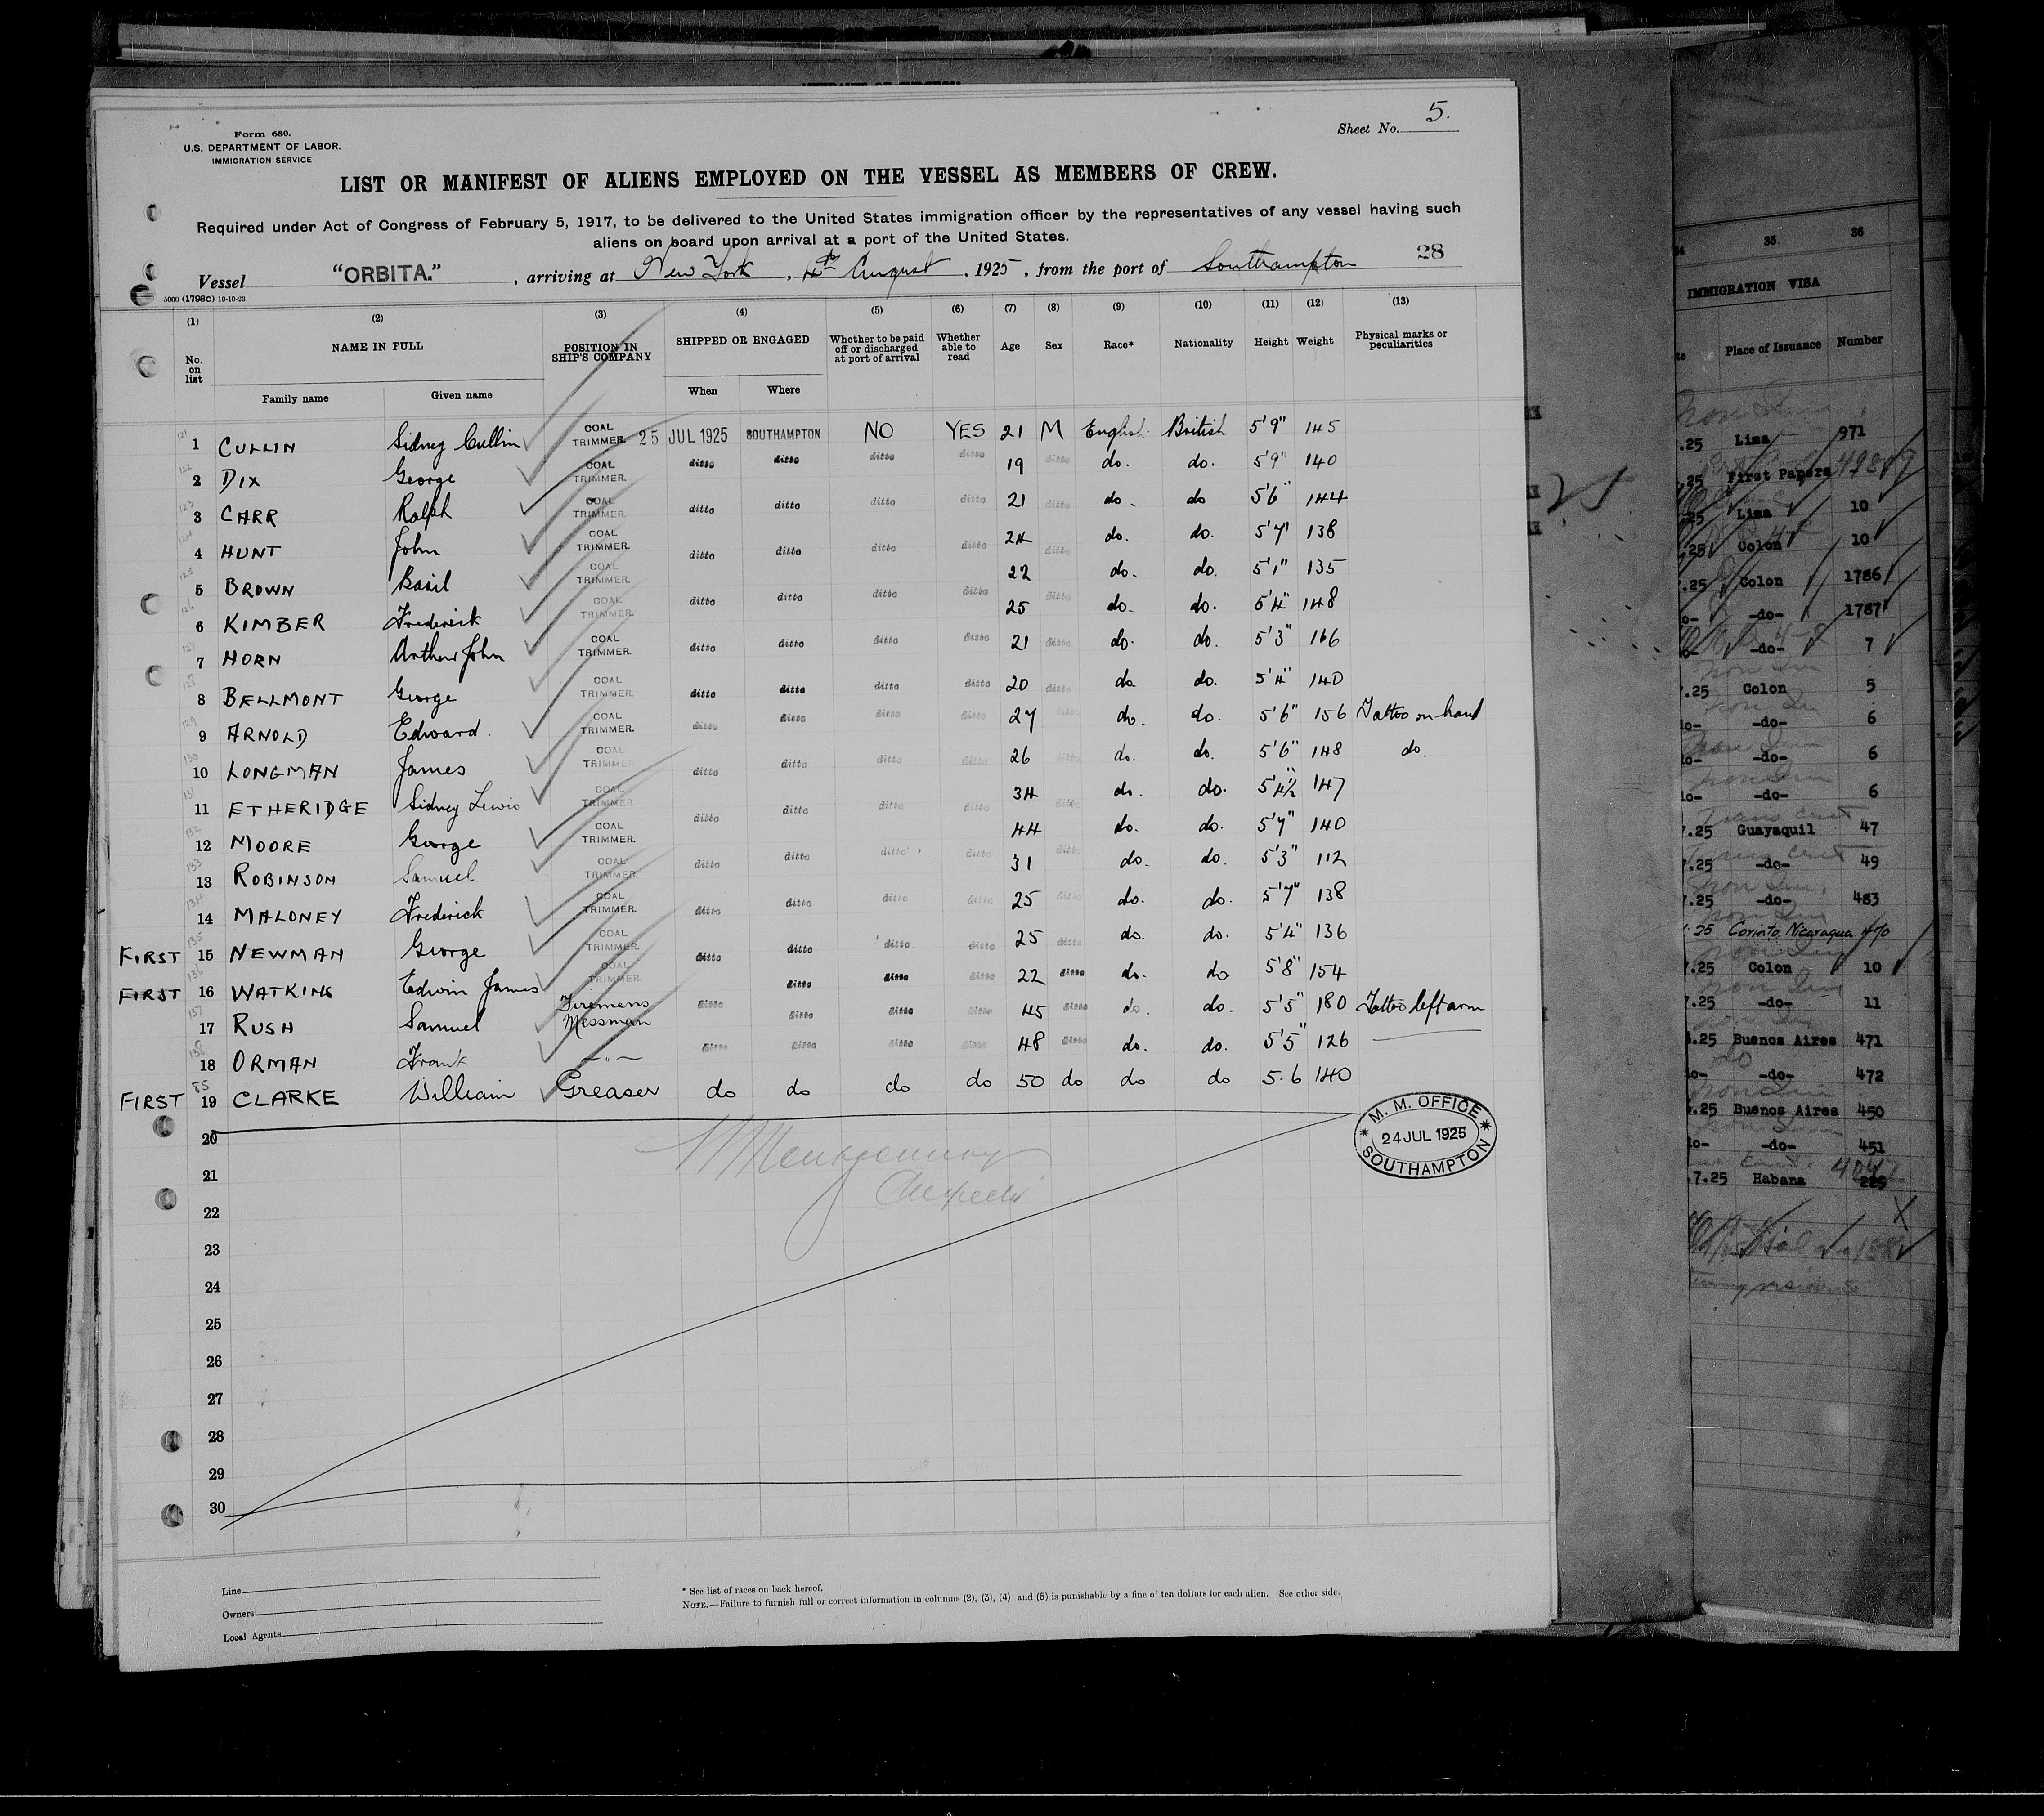 Form 680.
U.S. DEPARTMENT OF LABOR.
IMMIGRATION SERVICE
Sheet No. 5.
LIST OR MANIFEST OF ALIENS EMPLOYED ON THE VESSEL AS MEMBERS OF CREW.
Required under Act of Congress of February 5, 1917, to be delivered to the United States immigration officer by the representatives of any vessel having such
aliens on board upon arrival at a port of the United States.
28
Vessel "ORBITA." , arriving at New York , 4th August , 1925 , from the port of Southampton
5000 (1798C) 19-10-23
(1) (2) (3) (4) (5) (6) (7) (8) (9) (10) (11) (12) (13)
No. on list NAME IN FULL POSITION IN SHIP'S COMPANY SHIPPED OR ENGAGED Whether to be paid off or discharged at port of arrival Whether able to read Age Sex Race* Nationality Height Weight Physical marks or peculiarities
Family name Given name When Where
121 1 CULLIN Sidney Cullin COAL TRIMMER. 25 JUL 1925 SOUTHAMPTON NO YES 21 M English British 5'9" 145
122 2 DIX George COAL TRIMMER. ditto ditto ditto ditto 19 ditto do. do. 5'9" 140
123 3 CARR Ralph COAL TRIMMER. ditto ditto ditto ditto 21 ditto do. do 5'6" 144
124 4 HUNT John COAL TRIMMER. ditto ditto ditto ditto 24 ditto do. do. 5'7" 138
125 5 BROWN Basil COAL TRIMMER. 22 do. do. 5'1" 135
126 6 KIMBER Frederick COAL TRIMMER. ditto ditto ditto ditto 25 ditto do. do. 5'4" 148
127 7 HORN Arthur John COAL TRIMMER. ditto ditto ditto ditto 21 ditto do. do. 5'3" 166
128 8 BELLMONT George COAL TRIMMER. ditto ditto ditto ditto 20 ditto do do. 5'4" 140
129 9 ARNOLD Edward. COAL TRIMMER. ditto ditto ditto ditto 27 ditto do. do. 5'6" 156 Tattoo on hand
130 10 LONGMAN James COAL TRIMMER ditto ditto ditto ditto 26 ditto do. do. 5'6" 148 do.
131 11 ETHERIDGE Sidney Lewis COAL TRIMMER. ditto ditto ditto ditto 34 ditto do. do. 5'4½" 147
132 12 MOORE George COAL TRIMMER. 44 do. do. 5'7" 140
133 13 ROBINSON Samuel COAL TRIMMER. ditto ditto ditto ditto 31 ditto do. do. 5'3" 112
134 14 MALONEY Frederick COAL TRIMMER. ditto ditto ditto ditto 25 ditto do. do. 5'7" 138
FIRST 135 15 NEWMAN George COAL TRIMMER. ditto ditto ditto. ditto 25 ditto do. do. 5'4" 136
FIRST 136 16 WATKINS Edwin James COAL TRIMMER. ditto ditto ditto 22 ditto do. do 5'8" 154
137 17 RUSH Samuel Firemens Messman ditto ditto ditto ditto 45 ditto do. do. 5'5" 180 Tattoo left arm
138 18 ORMAN Frank —"— ditto ditto ditto ditto 48 ditto do. do. 5'5" 126
FIRST 85 19 CLARKE William Greaser do do do do 50 do do do 5.6 140
M. M. OFFICE
24 JUL 1925
SOUTHAMPTON
20
21
22
23
24
25
26
27
28
29
30
Line
Owners
Local Agents
* See list of races on back hereof.
NOTE.—Failure to furnish full or correct information in columns (2), (3), (4) and (5) is punishable by a fine of ten dollars for each alien. See other side.
35 36
IMMIGRATION VISA
Place of Issuance Number
.25 Lima 971
.25 First Papers
.25 Lima 10
.25 Colon 10
.25 Colon 1786
-do- 1787
-do- 7
.25 Colon 5
-do- 6
-do- 6
-do- 6
7.25 Guayaquil 47
7.25 -do- 49
7.25 -do- 483
.25 Corinto. Nicaragua 470
7.25 Colon 10
7.25 -do- 11
.25 Buenos Aires 471
-do- 472
.25 Buenos Aires 450
-do- 451
.7.25 Habana